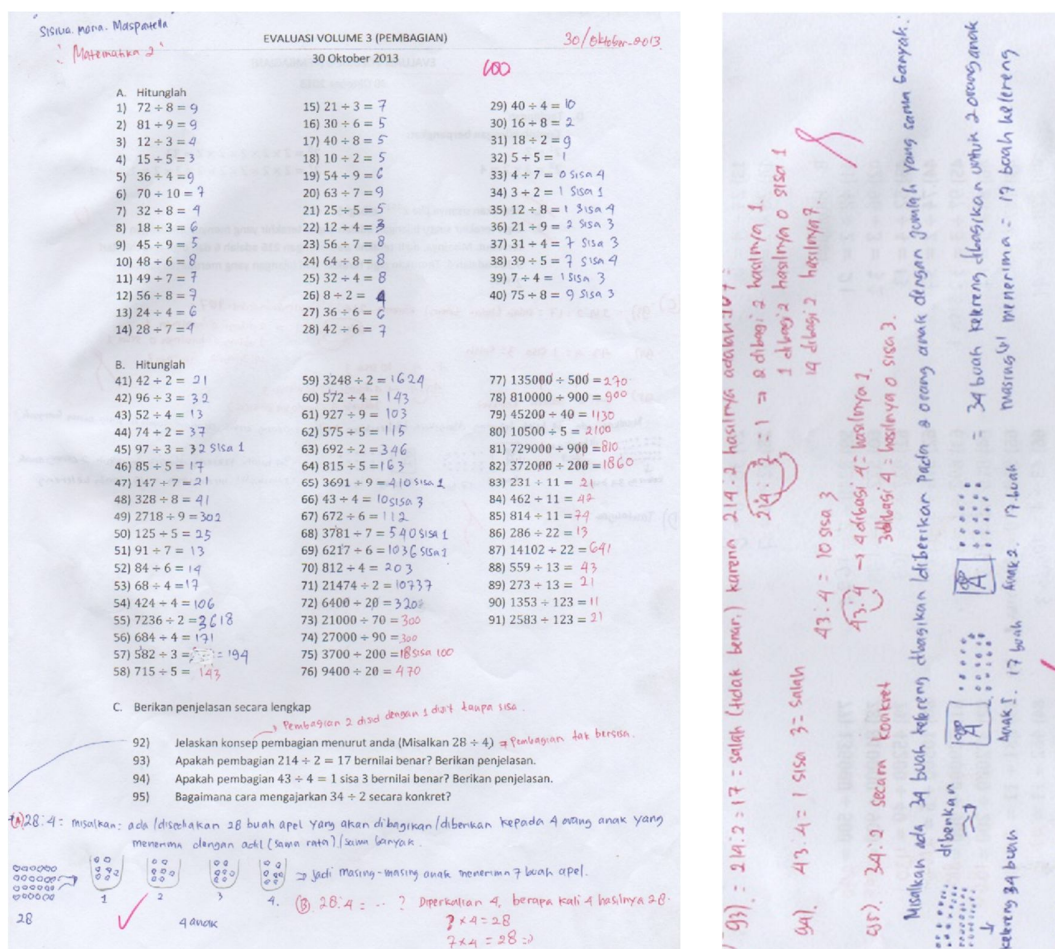 Sisilia. Maria. Maspaitella
"Matematika 2"
EVALUASI VOLUME 3 (PEMBAGIAN)
30/Oktober-2013
30 Oktober 2013
100
A. Hitunglah
1) 72 ÷ 8 = 9
2) 81 ÷ 9 = 9
3) 12 ÷ 3 = 4
4) 15 ÷ 5 = 3
5) 36 ÷ 4 = 9
6) 70 ÷ 10 = 7
7) 32 ÷ 8 = 4
8) 18 ÷ 3 = 6
9) 45 ÷ 9 = 5
10) 48 ÷ 6 = 8
11) 49 ÷ 7 = 7
12) 56 ÷ 8 = 7
13) 24 ÷ 4 = 6
14) 28 ÷ 7 = 4
15) 21 ÷ 3 = 7
16) 30 ÷ 6 = 5
17) 40 ÷ 8 = 5
18) 10 ÷ 2 = 5
19) 54 ÷ 9 = 6
20) 63 ÷ 7 = 9
21) 25 ÷ 5 = 5
22) 12 ÷ 4 = 3
23) 56 ÷ 7 = 8
24) 64 ÷ 8 = 8
25) 32 ÷ 4 = 8
26) 8 ÷ 2 = 4
27) 36 ÷ 6 = 6
28) 42 ÷ 6 = 7
29) 40 ÷ 4 = 10
30) 16 ÷ 8 = 2
31) 18 ÷ 2 = 9
32) 5 ÷ 5 = 1
33) 4 ÷ 7 = 0 sisa 4
34) 3 ÷ 2 = 1 sisa 1
35) 12 ÷ 8 = 1 sisa 4
36) 21 ÷ 9 = 2 sisa 3
37) 31 ÷ 4 = 7 sisa 3
38) 39 ÷ 5 = 7 sisa 4
39) 7 ÷ 4 = 1 sisa 3
40) 75 ÷ 8 = 9 sisa 3
B. Hitunglah
41) 42 ÷ 2 = 21
42) 96 ÷ 3 = 32
43) 52 ÷ 4 = 13
44) 74 ÷ 2 = 37
45) 97 ÷ 3 = 32 sisa 1
46) 85 ÷ 5 = 17
47) 147 ÷ 7 = 21
48) 328 ÷ 8 = 41
49) 2718 ÷ 9 = 302
50) 125 ÷ 5 = 25
51) 91 ÷ 7 = 13
52) 84 ÷ 6 = 14
53) 68 ÷ 4 = 17
54) 424 ÷ 4 = 106
55) 7236 ÷ 2 = 3618
56) 684 ÷ 4 = 171
57) 582 ÷ 3 = = 194
58) 715 ÷ 5 = 143
59) 3248 ÷ 2 = 1624
60) 572 ÷ 4 = 143
61) 927 ÷ 9 = 103
62) 575 ÷ 5 = 115
63) 692 ÷ 2 = 346
64) 815 ÷ 5 = 163
65) 3691 ÷ 9 = 410 sisa 1
66) 43 ÷ 4 = 10 sisa 3
67) 672 ÷ 6 = 112
68) 3781 ÷ 7 = 540 sisa 1
69) 6217 ÷ 6 = 1036 sisa 1
70) 812 ÷ 4 = 203
71) 21474 ÷ 2 = 10737
72) 6400 ÷ 20 = 320
73) 21000 ÷ 70 = 300
74) 27000 ÷ 90 = 300
75) 3700 ÷ 200 = 18 sisa 100
76) 9400 ÷ 20 = 470
77) 135000 ÷ 500 = 270
78) 810000 ÷ 900 = 900
79) 45200 ÷ 40 = 1130
80) 10500 ÷ 5 = 2100
81) 729000 ÷ 900 = 810
82) 372000 ÷ 200 = 1860
83) 231 ÷ 11 = 21
84) 462 ÷ 11 = 42
85) 814 ÷ 11 = 74
86) 286 ÷ 22 = 13
87) 14102 ÷ 22 = 641
88) 559 ÷ 13 = 43
89) 273 ÷ 13 = 21
90) 1353 ÷ 123 = 11
91) 2583 ÷ 123 = 21
C. Berikan penjelasan secara lengkap
Pembagian 2 digit dengan 1 digit tanpa sisa.
92) Jelaskan konsep pembagian menurut anda (Misalkan 28 ÷ 4) → Pembagian tak bersisa.
93) Apakah pembagian 214 ÷ 2 = 17 bernilai benar? Berikan penjelasan.
94) Apakah pembagian 43 ÷ 4 = 1 sisa 3 bernilai benar? Berikan penjelasan.
95) Bagaimana cara mengajarkan 34 ÷ 2 secara konkret?
(A) 28:4 = misalkan: ada /disediakan 28 buah apel yang akan dibagikan/diberikan kepada 4 orang anak yang
menerima dengan adil (sama rata)/sama banyak.
⇒ Jadi masing-masing anak menerima 7 buah apel.
1 2 3 4.
28
4 anak
(B) 28:4 = ... ? Diperkalian 4, berapa kali 4 hasilnya 28.
? × 4 = 28
7 × 4 = 28 ⇒
93). = 214:2 = 17 = salah (tidak benar) karena 214:2 hasilnya adalah 107 =
214:2 = 1 ⇒ 2 dibagi 2 hasilnya 1.
1 dibagi 2 hasilnya 0 sisa 1
14 dibagi 2 hasilnya 7.
94). 43:4 = 1 sisa 3 = salah
43:4 = 10 sisa 3
43:4 → 4 dibagi 4 = hasilnya 1.
3 dibagi 4 = hasilnya 0 sisa 3.
95). 34:2 secara konkret
Misalkan ada 34 buah kelereng dibagikan /diberikan pada 2 orang anak dengan jumlah yang sama banyak:
diberikan
= 34 buah kelereng dibagikan untuk 2 orang anak
masing² menerima = 17 buah kelereng
kelereng 34 buah
Anak 1. 17 buah
Anak 2. 17 buah